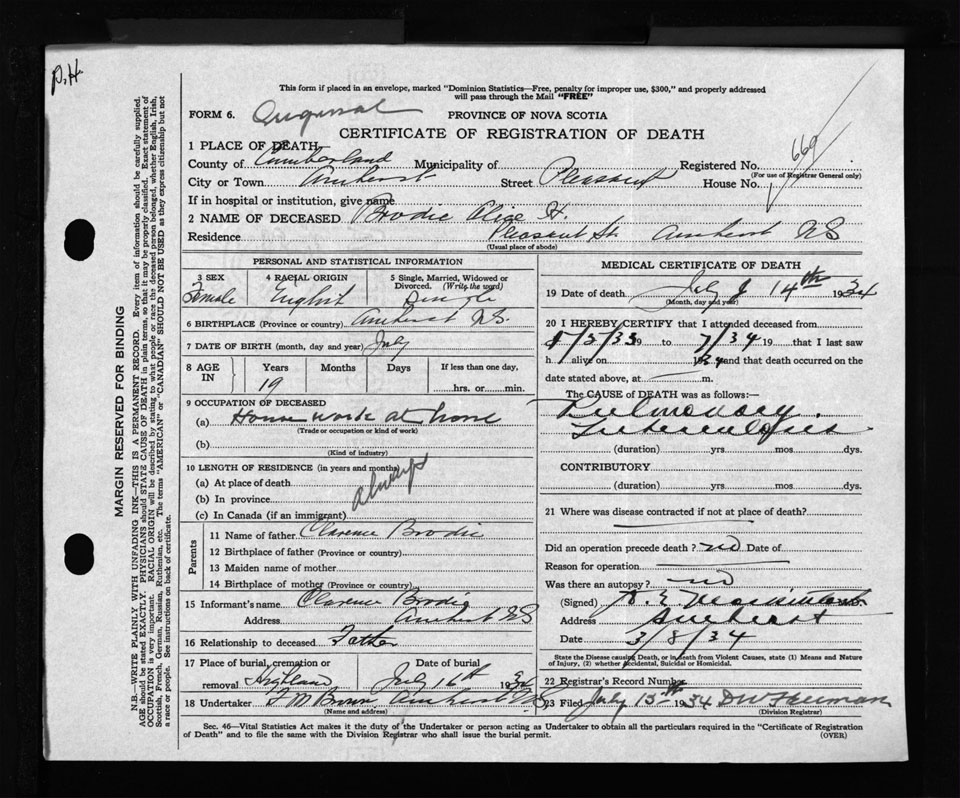 P.H.
This form if placed in an envelope, marked "Dominion Statistics—Free, penalty for improper use, $300," and properly addressed
will pass through the Mail "FREE"
FORM 6. Original PROVINCE OF NOVA SCOTIA
CERTIFICATE OF REGISTRATION OF DEATH
669
1 PLACE OF DEATH
County of Cumberland Municipality of Registered No.
(For use of Registrar General only)
City or Town Amherst Street Pleasant House No.
If in hospital or institution, give name
2 NAME OF DECEASED Brodie Alice H.
Residence Pleasant St. Amherst NS
(Usual place of abode)
PERSONAL AND STATISTICAL INFORMATION
3 SEX 4 RACIAL ORIGIN 5 Single, Married, Widowed or
Divorced. (Write the word)
Female English Single
6 BIRTHPLACE (Province or country) Amherst NS.
7 DATE OF BIRTH (month, day and year) July
8 AGE IN Years Months Days If less than one day,
19 hrs. or min.
9 OCCUPATION OF DECEASED
(a) House work at home
(Trade or occupation or kind of work)
(b)
(Kind of industry)
10 LENGTH OF RESIDENCE (in years and months)
(a) At place of death always
(b) In province
(c) In Canada (if an immigrant)
Parents
11 Name of father Clarence Brodie
12 Birthplace of father (Province or country)
13 Maiden name of mother
14 Birthplace of mother (Province or country)
15 Informant's name Clarence Brodie
Address Amherst NS
16 Relationship to deceased Father
17 Place of burial, cremation or removal Highland Date of burial July 16th 1934
18 Undertaker F M Brown Amherst N.S
(Name and address)
MEDICAL CERTIFICATE OF DEATH
19 Date of death July 14th 1934
(Month, day and year)
20 I HEREBY CERTIFY that I attended deceased from
19 to 7/34 19 that I last saw
h alive on 1934 and that death occurred on the
date stated above, at m.
The CAUSE OF DEATH was as follows:—
Pulmonary
Tuberculosis
(duration) yrs. mos. dys.
CONTRIBUTORY
(duration) yrs. mos. dys.
21 Where was disease contracted if not at place of death?
Did an operation precede death? no Date of
Reason for operation
Was there an autopsy? no
(Signed)
Address Amherst
Date 3/8/34
State the Disease causing Death, or in death from Violent Causes, state (1) Means and Nature
of Injury, (2) whether Accidental, Suicidal or Homicidal.
22 Registrar's Record Number
23 Filed July 15th 1934
(Division Registrar)
Sec. 46—Vital Statistics Act makes it the duty of the Undertaker or person acting as Undertaker to obtain all the particulars required in the "Certificate of Registration
of Death" and to file the same with the Division Registrar who shall issue the burial permit. (OVER)
MARGIN RESERVED FOR BINDING
N.B.—WRITE PLAINLY WITH UNFADING INK—THIS IS A PERMANENT RECORD. Every item of information should be carefully supplied.
AGE should be stated EXACTLY. PHYSICIANS should STATE CAUSE OF DEATH in plain terms, so that it may be properly classified. Exact statement of
OCCUPATION is very important. RACIAL ORIGIN will be described by stating to what people or race the deceased person belonged, whether English, Irish,
Scottish, French, German, Russian, Ruthenian, etc. The terms "AMERICAN" or "CANADIAN" SHOULD NOT BE USED as they express citizenship but not
a race or people. See instructions on back of certificate.